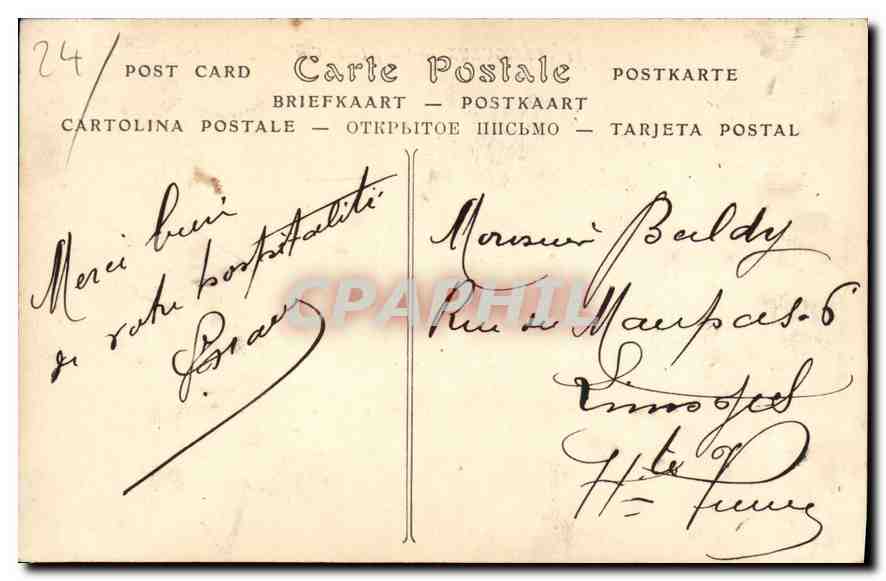 24/
POST CARD Carte Postale POSTKARTE
BRIEFKAART — POSTKAART
CARTOLINA POSTALE — ОТКРЫТОЕ ПИСЬМО — TARJETA POSTAL
Merci bien
de votre hospitalité
Monsieur Baldy
Rue du Maupas - 6
Limoges
Hte Vienne
CPAPHIL